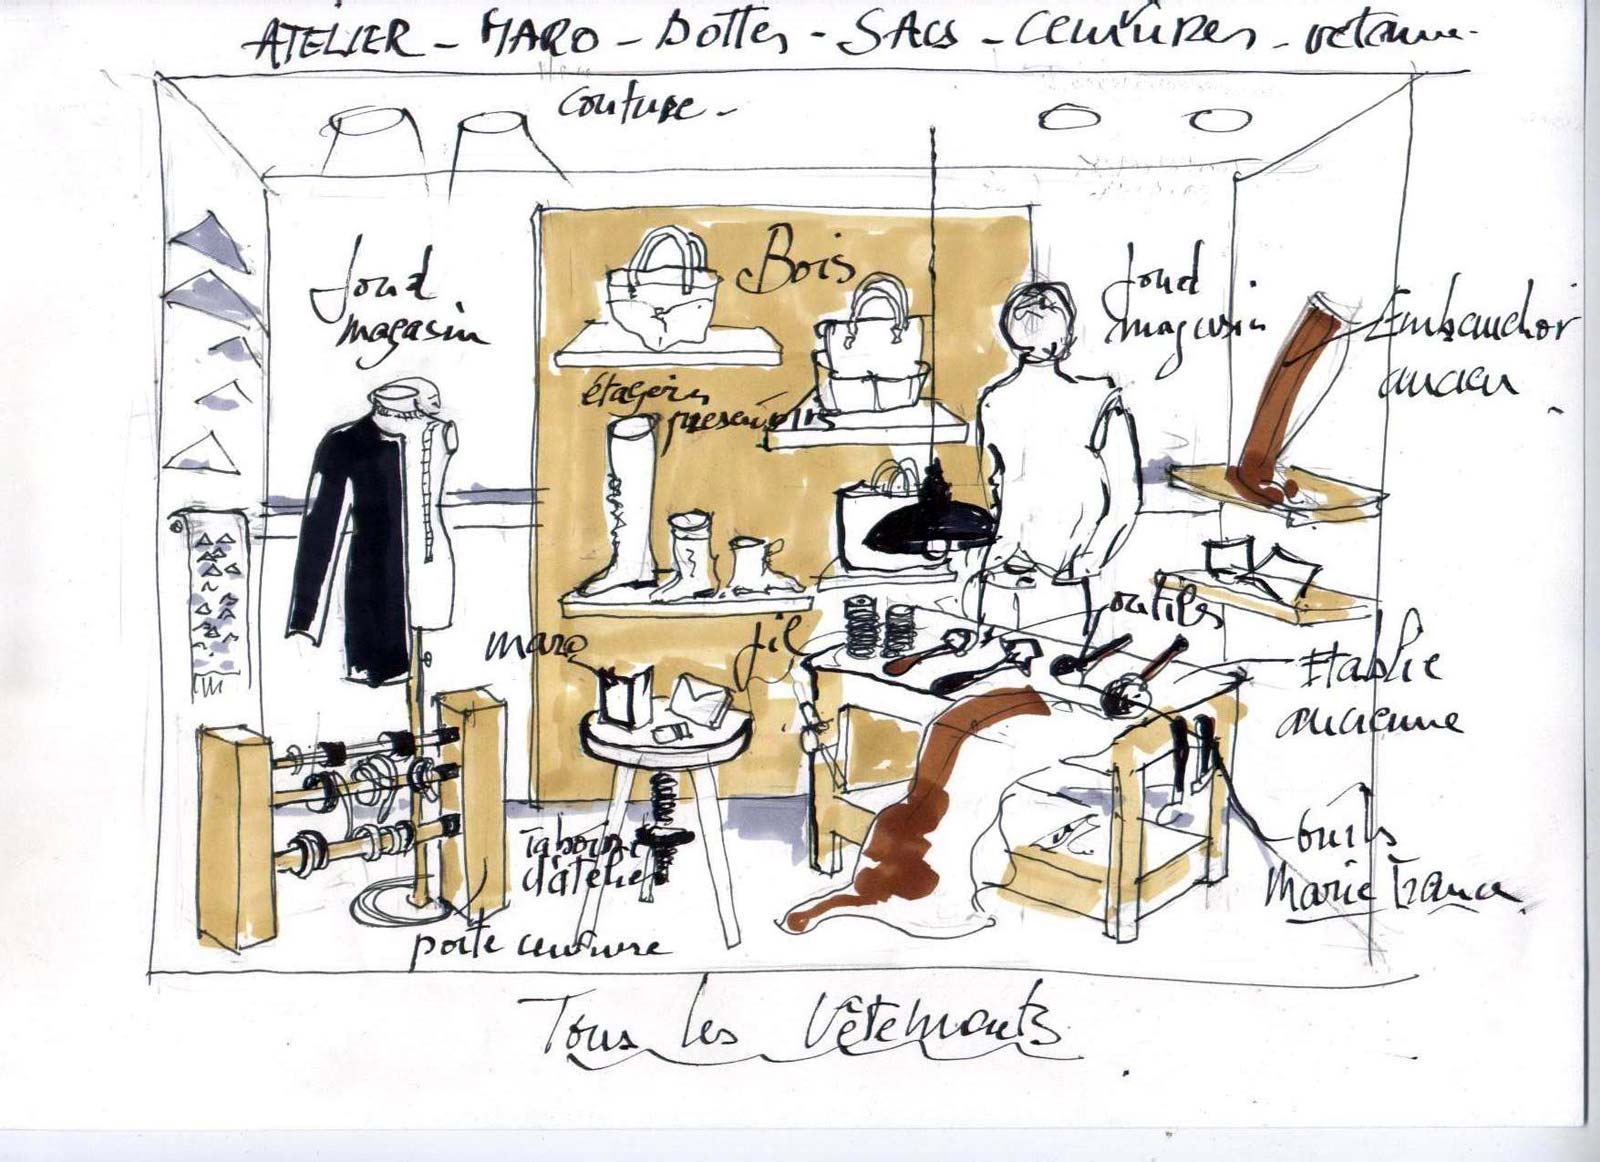 ATELIER - MARO - Bottes - SACS - Ceintures -
couture -
fond
magasin
Bois
fond
magasin
Embauchoir
ancien
étagères
présentoirs
maro
fil
outils
Etablie
ancienne
Tabouret
d'atelier
outils
Marie France
porte ceinture
Tous les Vêtements